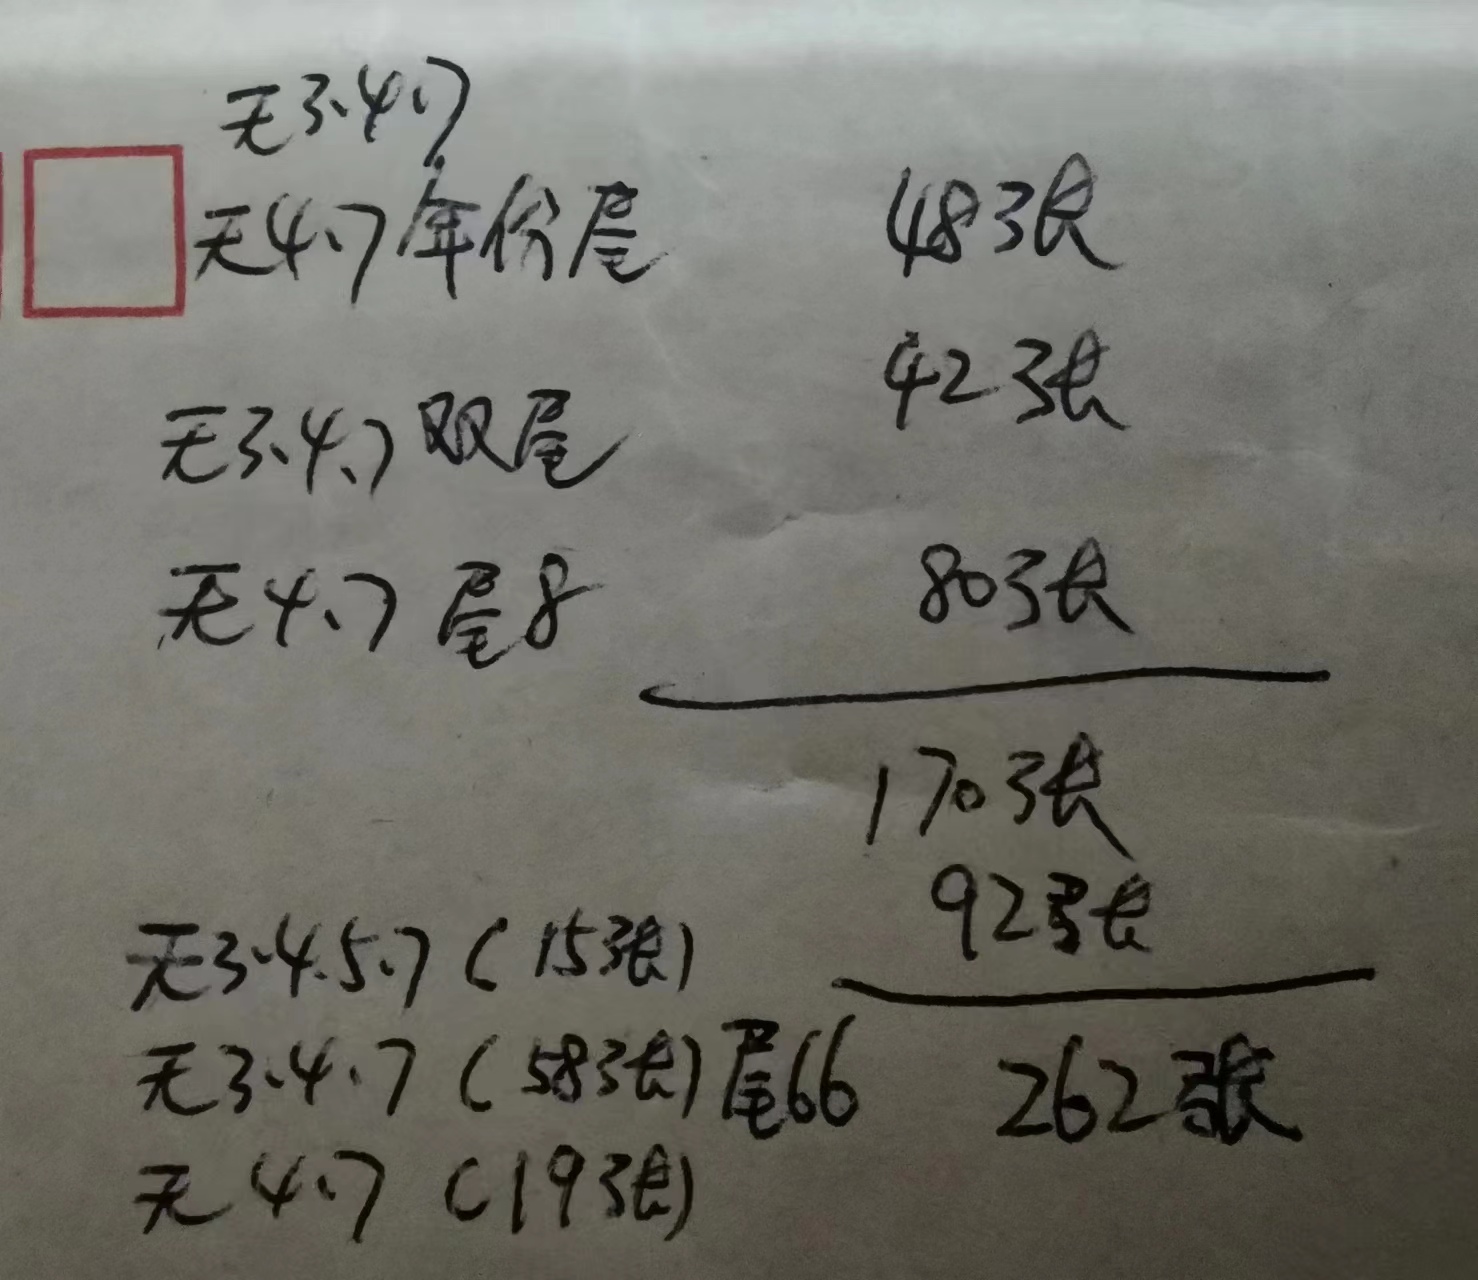 无3、4、7
无4、7年份尾 48张
42张
无3、4、7双尾
无4、7 尾8 80张
170张
92张
无3、4、5、7(15张)
无3、4、7(58张)尾66 262张
无4、7(19张)